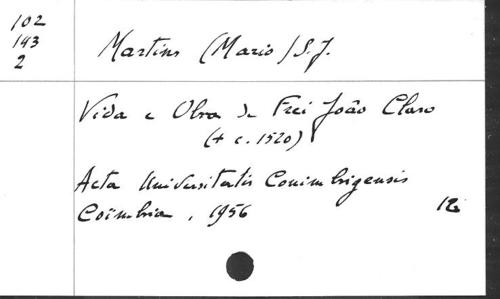 102
143
2
Martins (Mario) S.J.
Vida e Obra de Frei João Claro
(+ c. 1520)
Acta Universitatis Conimbrigensis
Coïmbria, 1956
12